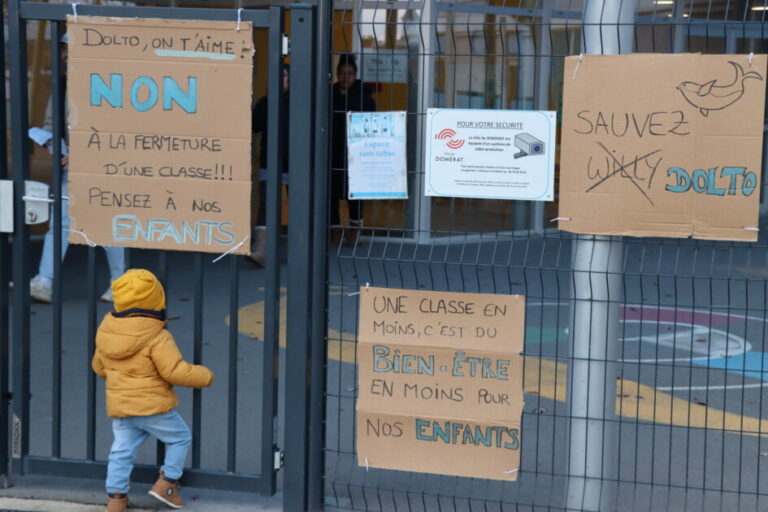 DOLTO, ON T'AIME
NON
À LA FERMETURE
D'UNE CLASSE!!!
PENSEZ À NOS
ENFANTS
Espace
sans tabac
POUR VOTRE SECURITE
La Ville de DOMERAT est
équipée d'un système de
vidéo protection
VILLE
DOMÉRAT
SAUVEZ
WILLY DOLTO
UNE CLASSE EN
MOINS, C'EST DU
BIEN-ÊTRE
EN MOINS POUR
NOS ENFANTS